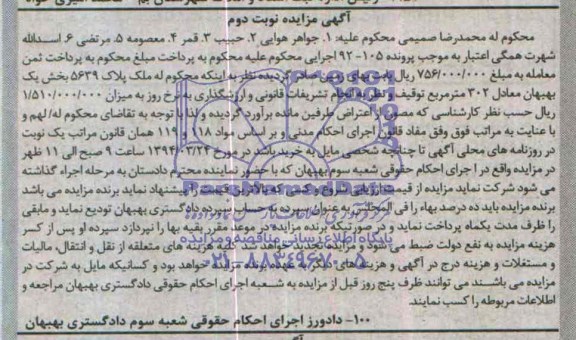 آگهی مزایده نوبت دوم
محکوم له محمدرضا صمیمی محکوم علیه: ۱. جواهر هوایی ۲. حبیب ۳. قمر ۴. معصومه ۵. مرتضی ۶. اسدالله
شهرت همگی اعتبار به موجب پرونده ۱۰۵-۹۲ اجرایی محکوم علیه محکوم به پرداخت مبلغ محکوم به پرداخت ثمن
معامله به مبلغ ۷۵۶/۰۰۰/۰۰۰ ریال به بهای صادر گردیده نظر به اینکه محکوم له ملک پلاک ۵۶۳۹ بخش یک
بهبهان معادل ۳۰۲ مترمربع توقیف و نظر به انجام تشریفات قانونی و ارزشگذاری به نرخ روز به میزان ۱/۵۱۰/۰۰۰/۰۰۰
ریال حسب نظر کارشناسی که مصون از اعتراض طرفین مانده برآورد گردیده و لذا با توجه به تقاضای محکوم له/لهم و
با عنایت به مراتب فوق وفق مفاد قانون اجرای احکام مدنی و بر اساس مواد ۱۱۸ و ۱۱۹ همان قانون مراتب یک نوبت
در روزنامه های محلی آگهی تا چنانچه شخصی مایل به خرید باشد در مورخ ۱۳۹۴/۰۳/۲۴ ساعت ۹ صبح الی ۱۱ ظهر
در مزایده واقع در اجرای احکام حقوقی شعبه سوم بهبهان که با حضور نماینده محترم دادستان به مرحله اجراء گذاشته
می شود شرکت نماید مزایده از قیمت شروع و کسی که بالاترین قیمت را پیشنهاد نماید برنده مزایده می باشد
برنده مزایده باید ده درصد بهاء را فی المجلس به عنوان سپرده به حساب سپرده دادگستری بهبهان تودیع نماید و مابقی
را ظرف مدت یکماه پرداخت نماید و در صورتیکه برنده مزایده در موعد مقرر بقیه بها را نپردازد سپرده او پس از کسر
هزینه مزایده به نفع دولت ضبط می شود و مزایده تجدید خواهد شد کلیه هزینه های متعلقه از نقل و انتقال، مالیات
و مستغلات و هزینه درج در آگهی و هزینه های دیگر به عهده برنده مزایده خواهد بود و کسانیکه مایل به شرکت در
مزایده می باشند می توانند ظرف پنج روز قبل از مزایده به شعبه اجرای احکام حقوقی دادگستری بهبهان مراجعه و
اطلاعات مربوطه را کسب نمایند.
۱۰۰- دادورز اجرای احکام حقوقی شعبه سوم دادگستری بهبهان
پایگاه اطلاع رسانی مناقصه و مزایده
۰۲۱-۸۸۳۴۹۶۷۰-۵